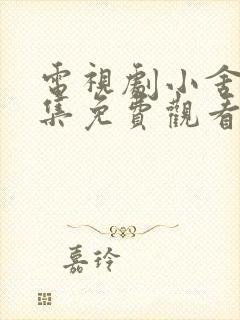 電視劇小舍
集免費觀看
嘉玲